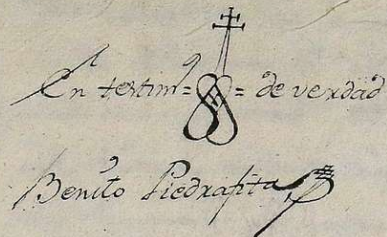 En testimº = = de verdad
Benito Piedrafita